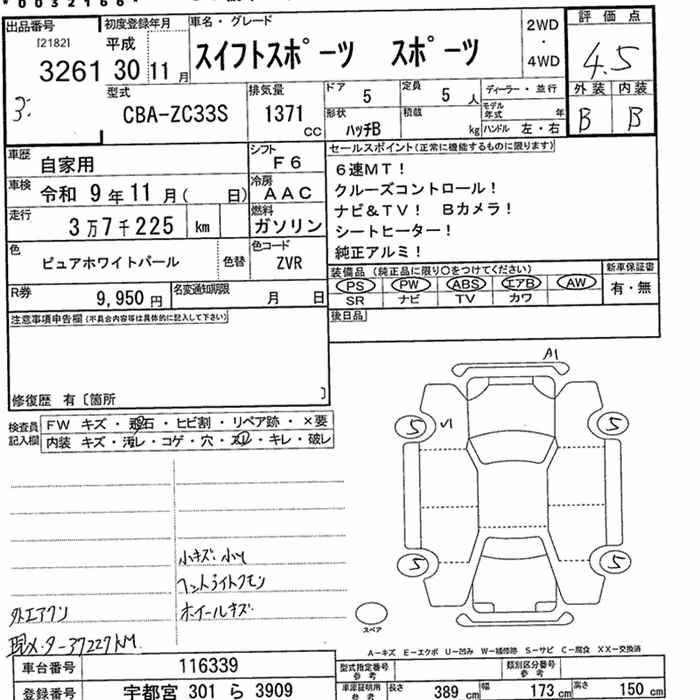 出品番号 初度登録年月 車名・グレード 2WD ・ 4WD 評価点
[2182] 3261 平成 30 11月 スイフトスポーツ スポーツ 4.5
型式 CBA-ZC33S 排気量 1371 CC ドア 5 定員 5人 ディーラー・並行 外装 内装
形状 ハッチB 積載 kg モデル年式 年 ハンドル 左・右 B B
車歴 自家用 シフト F6 セールスポイント(正常に機能するものに限ります)
車検 令和 9年11月( 日) 冷房 AAC
走行 3万7千225 km 燃料 ガソリン
6速MT!
クルーズコントロール!
ナビ&TV! Bカメラ!
シートヒーター!
純正アルミ!
色 ピュアホワイトパール 色替 色コード ZVR
装備品(純正品に限り○をつけてください) 新車保証書
PS PW ABS エアB AW 有・無
SR ナビ TV カワ
R券 9,950円 名変通知期限 月 日
注意事項申告欄(不具合内容等は具体的に記入して下さい) 後日品
修復歴 有〔箇所 〕
検査員記入欄 FW キズ・飛石・ヒビ割・リペア跡・×要
内装 キズ・汚レ・コゲ・穴・スレ・キレ・破レ
A1
5 5
5 5
小キズ
ヘッドライトクモン
外エアクン ホイールキズ
現メーター37227KM
スペア
A-キズ E-エクボ U-凹み W-補修跡 S-サビ C-腐食 XX-交換済
車台番号 116339 型式指定番号 参考 類別区分番号 参考
登録番号 宇都宮 301 ら 3909 車庫証明用 参考 長さ 389 cm 幅 173 cm 高さ 150 cm